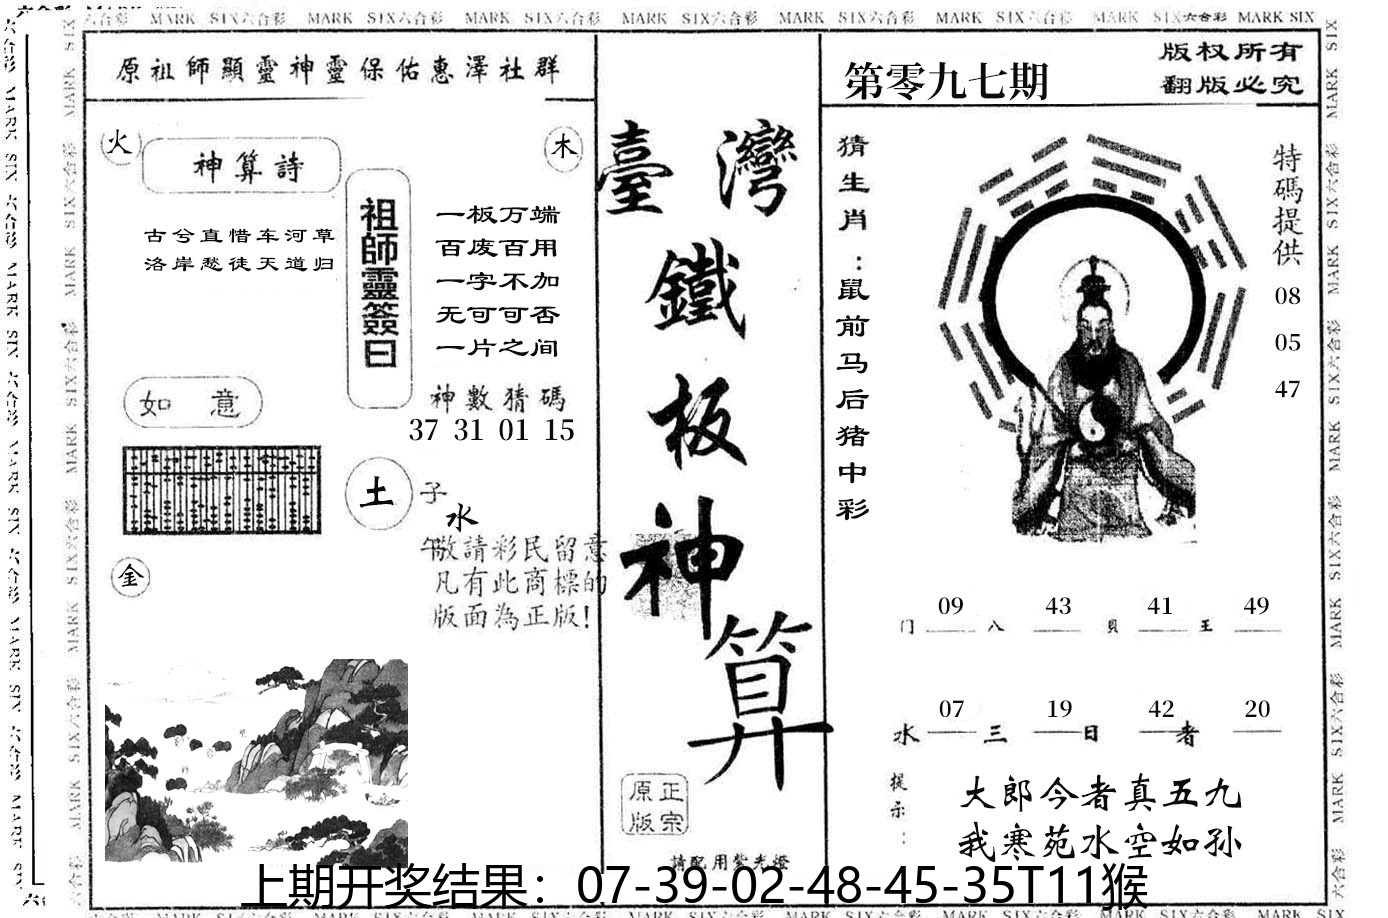 六合彩 MARK SIX六合彩 MARK SIX六合彩 MARK SIX六合彩 MARK SIX六合彩 MARK SIX六合彩 MARK SIX六合彩 MARK SIX六合彩 MARK SIX
原祖師顯靈神靈保佑惠澤社群
火
神算詩
木
古兮直惜车河草
洛岸愁徒天道归
祖師靈簽曰
一板万端
百废百用
一字不加
无可可否
一片之间
神數猜碼
37 31 01 15
如 意
土
子
水
午
敬請彩民留意
凡有此商標的
版面為正版!
金
臺灣
鐵
板
神
算
正宗
原版
請配用紫光燈
第零九七期
版权所有
翻版必究
猜生肖:鼠前马后猪中彩
特碼提供
08
05
47
09 43 41 49
门 八 貝 王
07 19 42 20
水 三 日 者
提示:
大郎今者真五九
我寒苑水空如孙
上期开奖结果：07-39-02-48-45-35T11猴